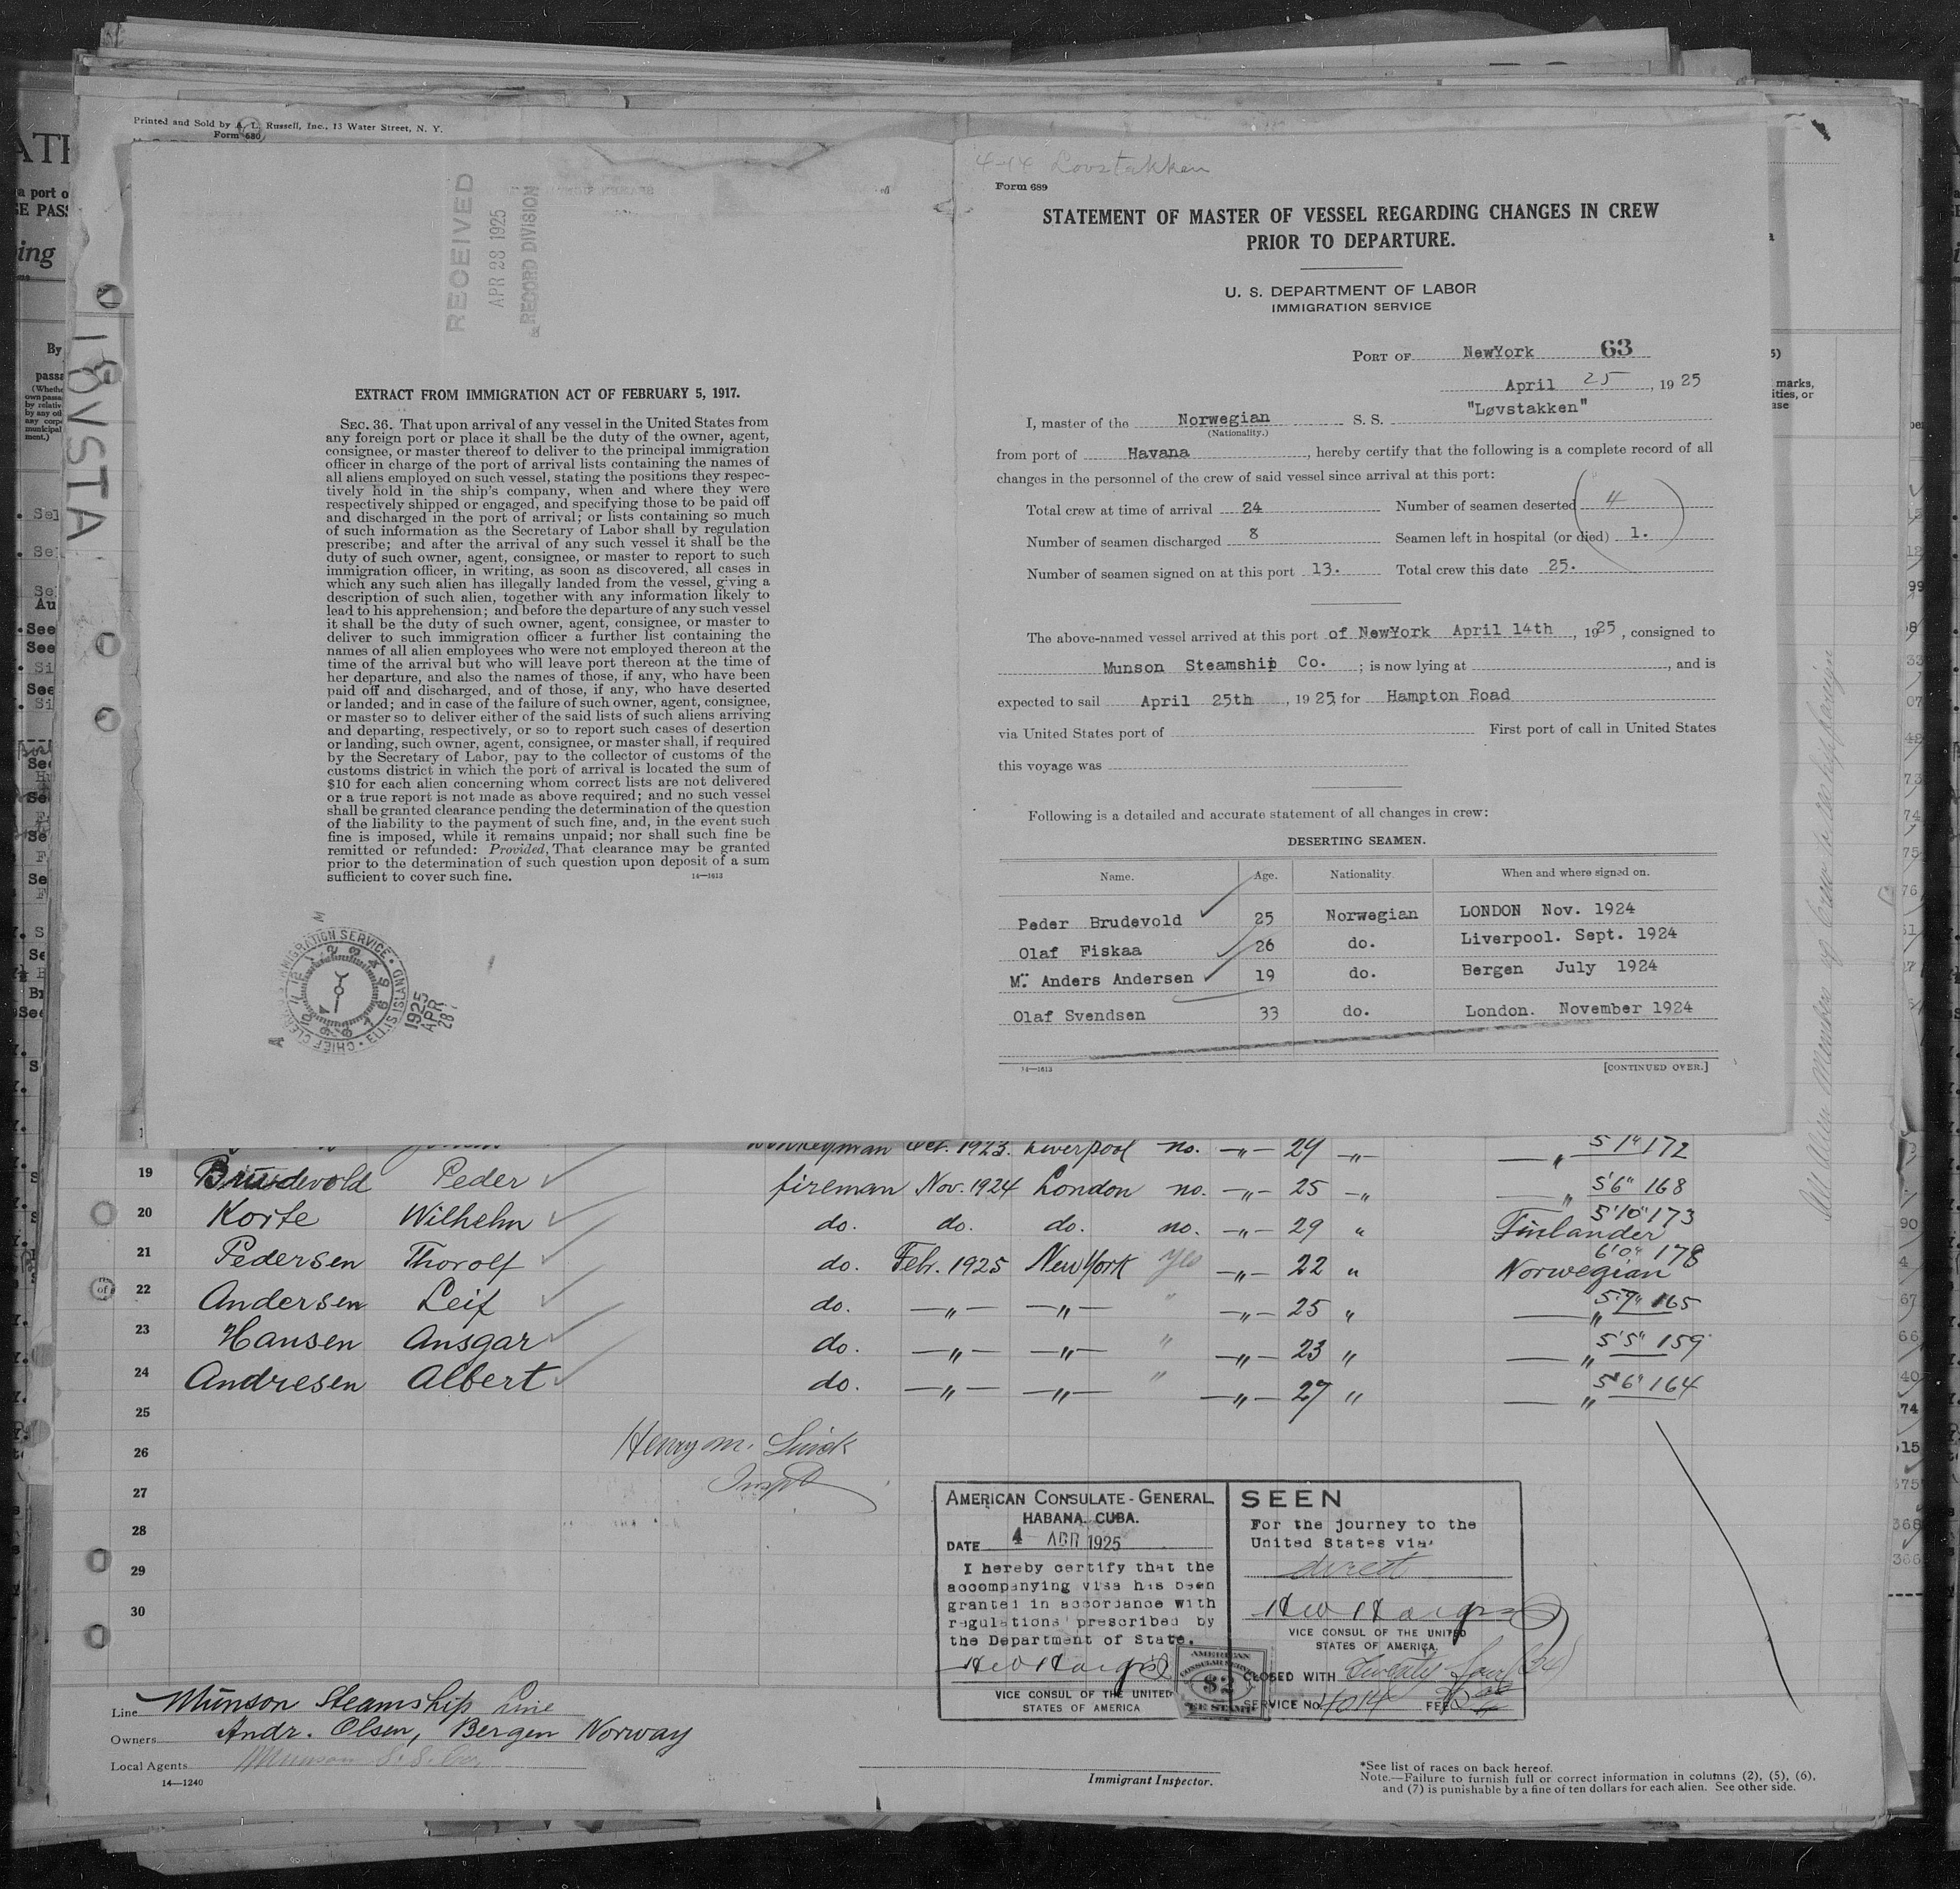 Printed and Sold by A. L. Russell, Inc., 13 Water Street, N. Y.
Form 680
RECEIVED
APR 28 1925
RECORD DIVISION
EXTRACT FROM IMMIGRATION ACT OF FEBRUARY 5, 1917.
SEC. 36. That upon arrival of any vessel in the United States from
any foreign port or place it shall be the duty of the owner, agent,
consignee, or master thereof to deliver to the principal immigration
officer in charge of the port of arrival lists containing the names of
all aliens employed on such vessel, stating the positions they respec-
tively hold in the ship's company, when and where they were
respectively shipped or engaged, and specifying those to be paid off
and discharged in the port of arrival; or lists containing so much
of such information as the Secretary of Labor shall by regulation
prescribe; and after the arrival of any such vessel it shall be the
duty of such owner, agent, consignee, or master to report to such
immigration officer, in writing, as soon as discovered, all cases in
which any such alien has illegally landed from the vessel, giving a
description of such alien, together with any information likely to
lead to his apprehension; and before the departure of any such vessel
it shall be the duty of such owner, agent, consignee, or master to
deliver to such immigration officer a further list containing the
names of all alien employees who were not employed thereon at the
time of the arrival but who will leave port thereon at the time of
her departure, and also the names of those, if any, who have been
paid off and discharged, and of those, if any, who have deserted
or landed; and in case of the failure of such owner, agent, consignee,
or master so to deliver either of the said lists of such aliens arriving
and departing, respectively, or so to report such cases of desertion
or landing, such owner, agent, consignee, or master shall, if required
by the Secretary of Labor, pay to the collector of customs of the
customs district in which the port of arrival is located the sum of
$10 for each alien concerning whom correct lists are not delivered
or a true report is not made as above required; and no such vessel
shall be granted clearance pending the determination of the question
of the liability to the payment of such fine, and, in the event such
fine is imposed, while it remains unpaid; nor shall such fine be
remitted or refunded: Provided, That clearance may be granted
prior to the determination of such question upon deposit of a sum
sufficient to cover such fine. 14—1613
IMMIGRATION SERVICE · ELLIS ISLAND · CHIEF CLERK
1925
APR
28
LOVSTA
4-14 Lovstakken
Form 689
STATEMENT OF MASTER OF VESSEL REGARDING CHANGES IN CREW
PRIOR TO DEPARTURE.
U. S. DEPARTMENT OF LABOR
IMMIGRATION SERVICE
PORT OF NewYork 63
April 25, 1925
I, master of the Norwegian S. S. "Løvstakken"
(Nationality.)
from port of Havana, hereby certify that the following is a complete record of all
changes in the personnel of the crew of said vessel since arrival at this port:
Total crew at time of arrival 24 Number of seamen deserted 4
Number of seamen discharged 8 Seamen left in hospital (or died) 1.
Number of seamen signed on at this port 13. Total crew this date 25.
The above-named vessel arrived at this port of NewYork April 14th, 1925, consigned to
Munson Steamship Co. ; is now lying at , and is
expected to sail April 25th, 1925, for Hampton Road
via United States port of First port of call in United States
this voyage was
Following is a detailed and accurate statement of all changes in crew:
DESERTING SEAMEN.
Name. Age. Nationality. When and where signed on.
Peder Brudevold 25 Norwegian LONDON Nov. 1924
Olaf Fiskaa 26 do. Liverpool. Sept. 1924
M. Anders Andersen 19 do. Bergen July 1924
Olaf Svendsen 33 do. London. November 1924
14—1613 [CONTINUED OVER.]
Donkeyman Oct. 1923. Liverpool no. —"— 29 —"— —"— 5'1" 172
19 Brudevold Peder fireman Nov. 1924 London no. —"— 25 —"— —"— 5'6" 168
20 Korte Wilhelm do. do. do. no. —"— 29 " Finlander 5'10" 173
21 Pedersen Thorolf do. Febr. 1925 NewYork yes —"— 22 " Norwegian 6'0" 178
22 Andersen Leif do. —"— —"— " —"— 25 " —"— 5'7" 165
23 Hansen Ansgar do. —"— —"— " —"— 23 " —"— 5'5" 159
24 Andresen Albert do. —"— —"— " —"— 27 " —"— 5'6" 164
25
26
27
28
29
30
Henry M.
Inspt
AMERICAN CONSULATE-GENERAL
HABANA. CUBA.
DATE 4 APR 1925
I hereby certify that the
accompanying visa has been
granted in accordance with
regulations prescribed by
the Department of State.
VICE CONSUL OF THE UNITED
STATES OF AMERICA
SEEN
For the journey to the
United States via
direct
VICE CONSUL OF THE UNITED
STATES OF AMERICA.
CLOSED WITH Twenty four (24)
SERVICE No. FEE
AMERICAN
CONSULAR SERVICE
$2
FEE STAMP
Line Munson Steamship Line
Owners Andr. Olsen, Bergen Norway
Local Agents Munson S. S. Co.
14—1240
Immigrant Inspector.
*See list of races on back hereof.
Note.—Failure to furnish full or correct information in columns (2), (5), (6),
and (7) is punishable by a fine of ten dollars for each alien. See other side.